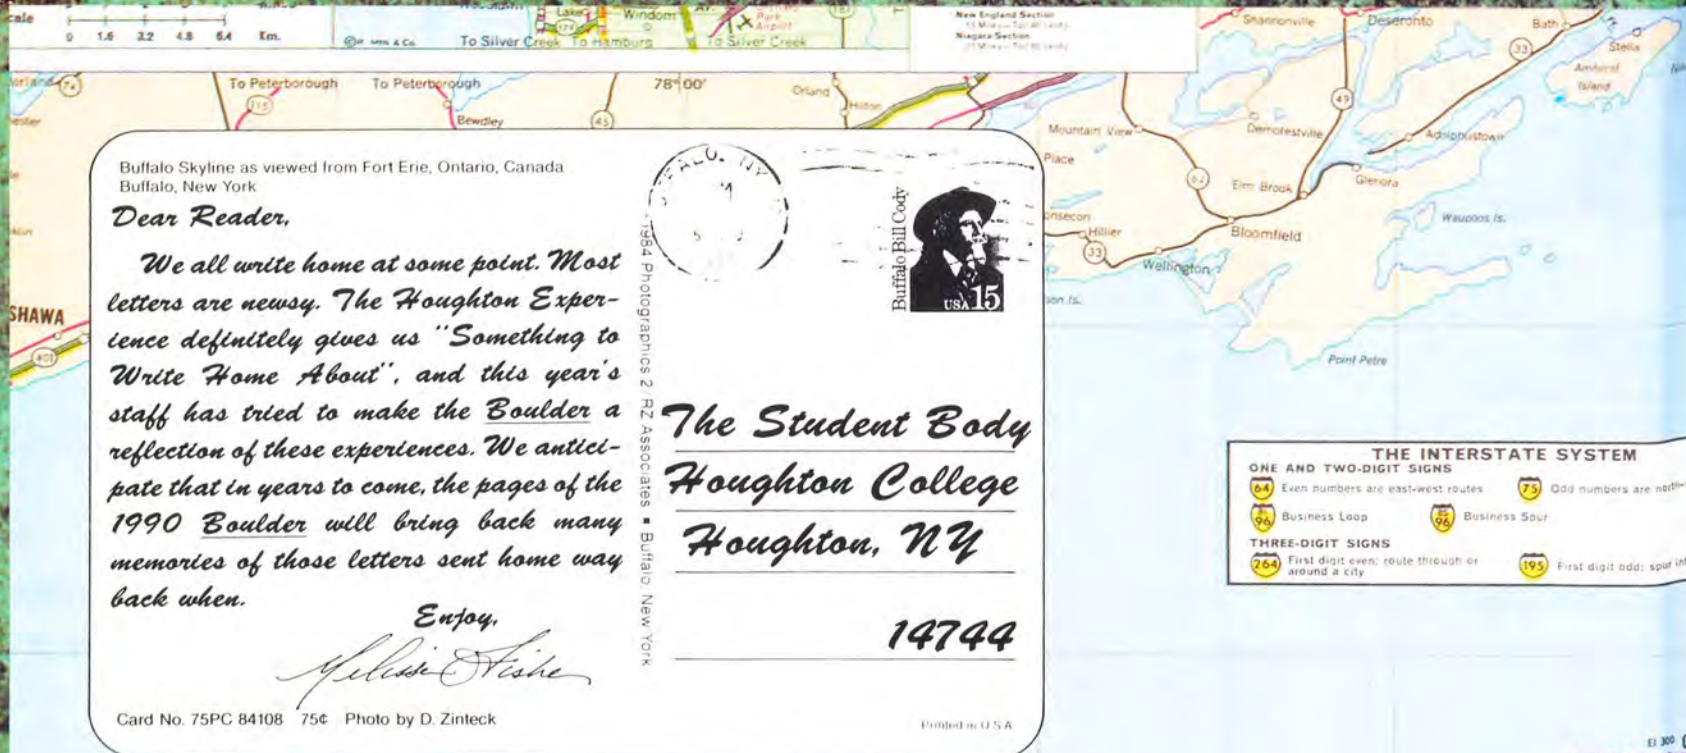 0 1.6 3.2 4.8 6.4 Km.
To Silver Creek To Hamburg To Silver Creek
Lake
Windom
Park
Airport
New England Section
Niagara Section
Shannonville
Deseronto
Bath
33
Stella
Amherst
Island
74
To Peterborough
To Peterborough
115
Bewdley
45
78°00'
Orland
Hilton
49
Mountain View
Demorestville
Adolphustown
Place
62
Elm Brook
Glenora
Hillier
33
Bloomfield
Waupoos Is.
Wellington
Point Petre
SHAWA
401
Buffalo Skyline as viewed from Fort Erie, Ontario, Canada
Buffalo, New York
Dear Reader,
We all write home at some point. Most
letters are newsy. The Houghton Exper-
ience definitely gives us "Something to
Write Home About", and this year's
staff has tried to make the Boulder a
reflection of these experiences. We antici-
pate that in years to come, the pages of the
1990 Boulder will bring back many
memories of those letters sent home way
back when.
Enjoy,
Melissa Fisher
Card No. 75PC 84108 75¢ Photo by D. Zinteck
1984 Photographics 2/RZ Associates ■ Buffalo, New York
Buffalo Bill Cody
USA 15
The Student Body
Houghton College
Houghton, NY
14744
Printed in U S A
THE INTERSTATE SYSTEM
ONE AND TWO-DIGIT SIGNS
64 Even numbers are east-west routes 75 Odd numbers are north-
96 Business Loop 96 Business Spur
THREE-DIGIT SIGNS
264 First digit even: route through or
around a city
195 First digit odd: spur